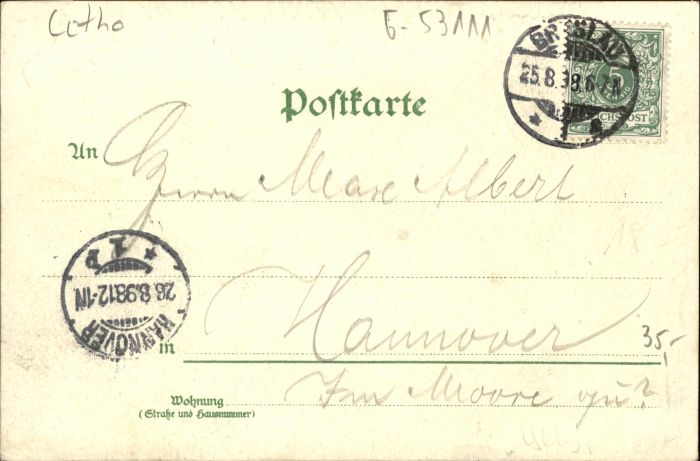 Litho
E-53111
BRESLAU
25.8.98.6-7N
REICHSPOST
Postkarte
An
Herrn Max Albert
HANNOVER
26.8.98.12-1N
1 P
in
Hannover
35,-
Wohnung
(Straße und Hausnummer)
Im Moore